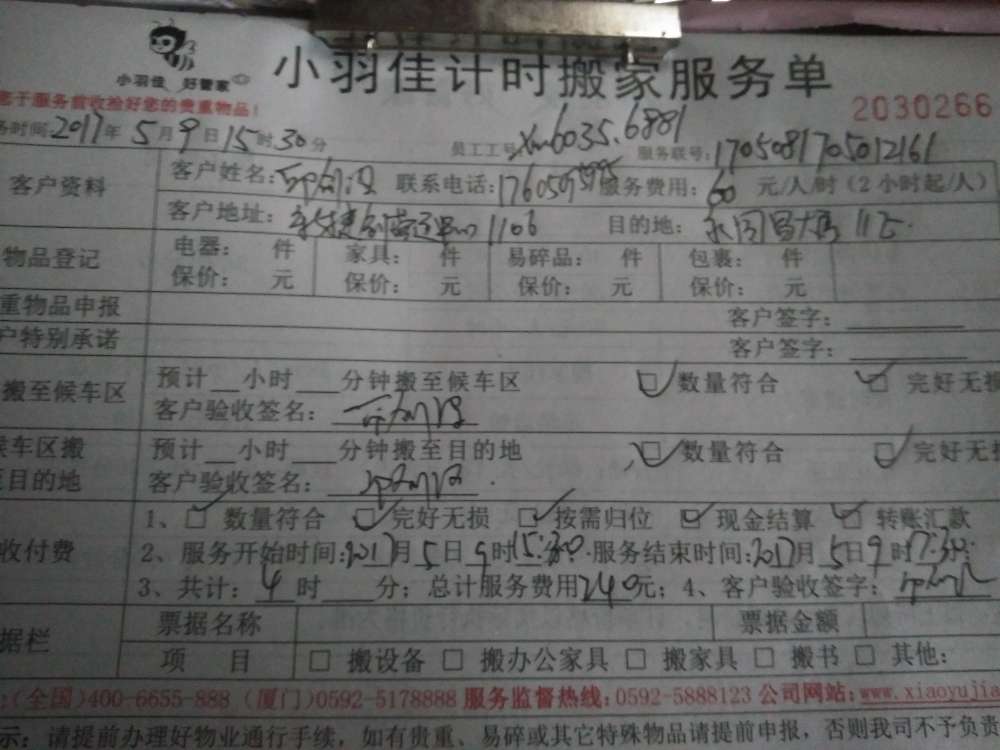 小羽佳 好管家
小羽佳计时搬家服务单
您于服务前收捡好您的贵重物品! 2030266
务时间2017年5月9日15时30分 员工工号xm6035.6881 服务联号:1705081705012161
客户资料 客户姓名: 联系电话: 服务费用:60元/人/时(2小时起/人)
客户地址: 1106 目的地:
物品登记 电器: 件 家具: 件 易碎品: 件 包裹: 件
保价: 元 保价: 元 保价: 元 保价: 元
重物品申报 客户签字:
户特别承诺 客户签字:
搬至候车区 预计__小时___分钟搬至候车区 数量符合 完好无损
客户验收签名:
候车区搬 预计__小时___分钟搬至目的地 数量符合 完好无损
至目的地 客户验收签名:
1、□数量符合 □完好无损 □按需归位 □现金结算 □转账汇款
收付费 2、服务开始时间:2017月5日9时15:30.服务结束时间:2017月5日9时17:30.
3、共计:4时 分;总计服务费用240元;4、客户验收签字:
据栏 票据名称 票据金额
项 目 □搬设备 □搬办公家具 □搬家具 □搬书 □其他:
:(全国)400-6655-888 (厦门)0592-5178888 服务监督热线:0592-5888123 公司网站:www.xiaoyujia
示:请提前办理好物业通行手续,如有贵重、易碎或其它特殊物品请提前申报,否则我司不予负责